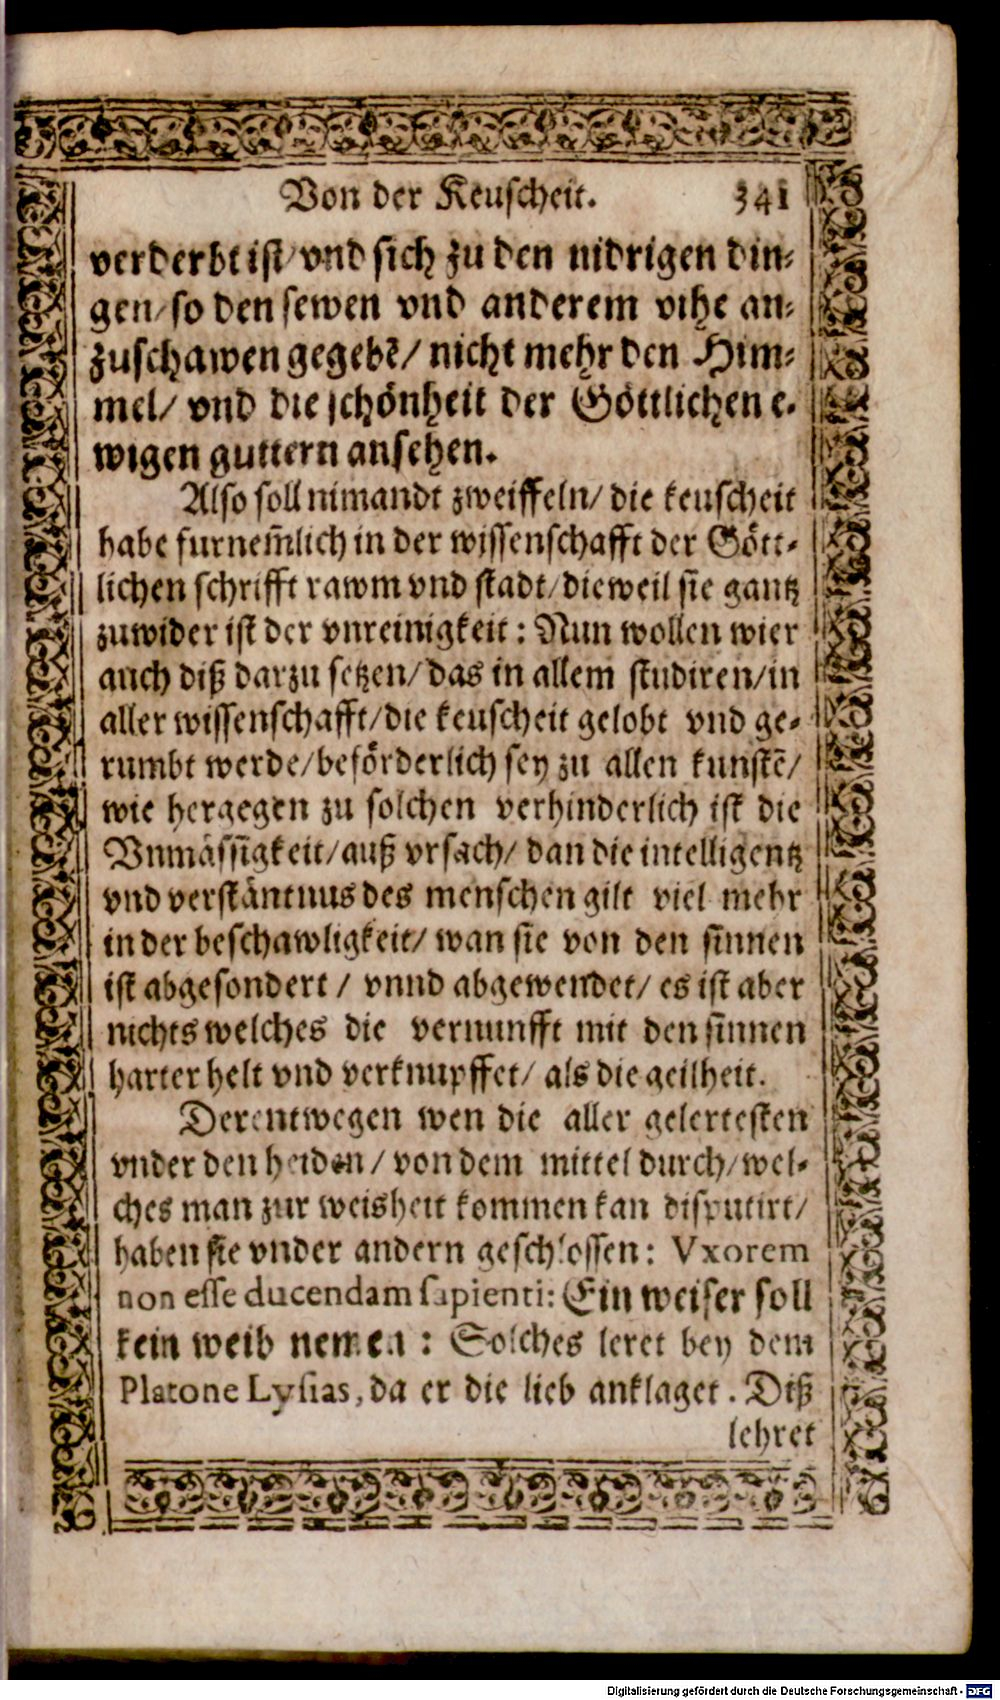 Von der Keuscheit. 341
verderbt ist/vnd sich zu den nidrigen din⸗
gen/so den sewen vnd anderem vihe an⸗
zuschawen gegebẽ/ nicht mehr den Him⸗
mel/ vnd die schönheit der Göttlichen e⸗
wigen guttern ansehen.
Also soll nimandt zweiffeln/ die keuscheit
habe furnem̃lich in der wissenschafft der Gött⸗
lichen schrifft rawm vnd stadt/dieweil sie gantz
zuwider ist der vnreinigkeit: Nun wollen wier
auch diß darzu setzen/das in allem studiren/in
aller wissenschafft/die keuscheit gelobt vnd ge⸗
rumbt werde/beförderlich sey zu allen kunstẽ/
wie hergegen zu solchen verhinderlich ist die
Vnmässigkeit/auß vrsach/ dan die intelligentz
vnd verstäntnus des menschen gilt viel mehr
in der beschawligkeit/ wan sie von den sinnen
ist abgesondert / vnnd abgewendet/ es ist aber
nichts welches die vernunfft mit den sinnen
harter helt vnd verknupffet/ als die geilheit.
Derentwegen wen die aller gelertesten
vnder den heiden / von dem mittel durch/wel⸗
ches man zur weisheit kommen kan disputirt/
haben sie vnder andern geschlossen: Vxorem
non esse ducendam sapienti: Ein weiser soll
kein weib nemen : Solches leret bey dem
Platone Lysias, da er die lieb anklaget. Diß
lehret
Digitalisierung gefördert durch die Deutsche Forschungsgemeinschaft - DFG